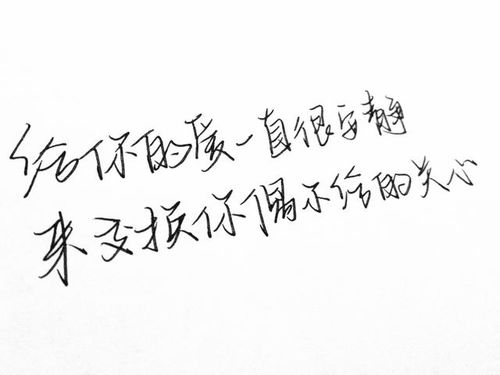 给你的爱一直很安静
来交换你偶尔给的关心